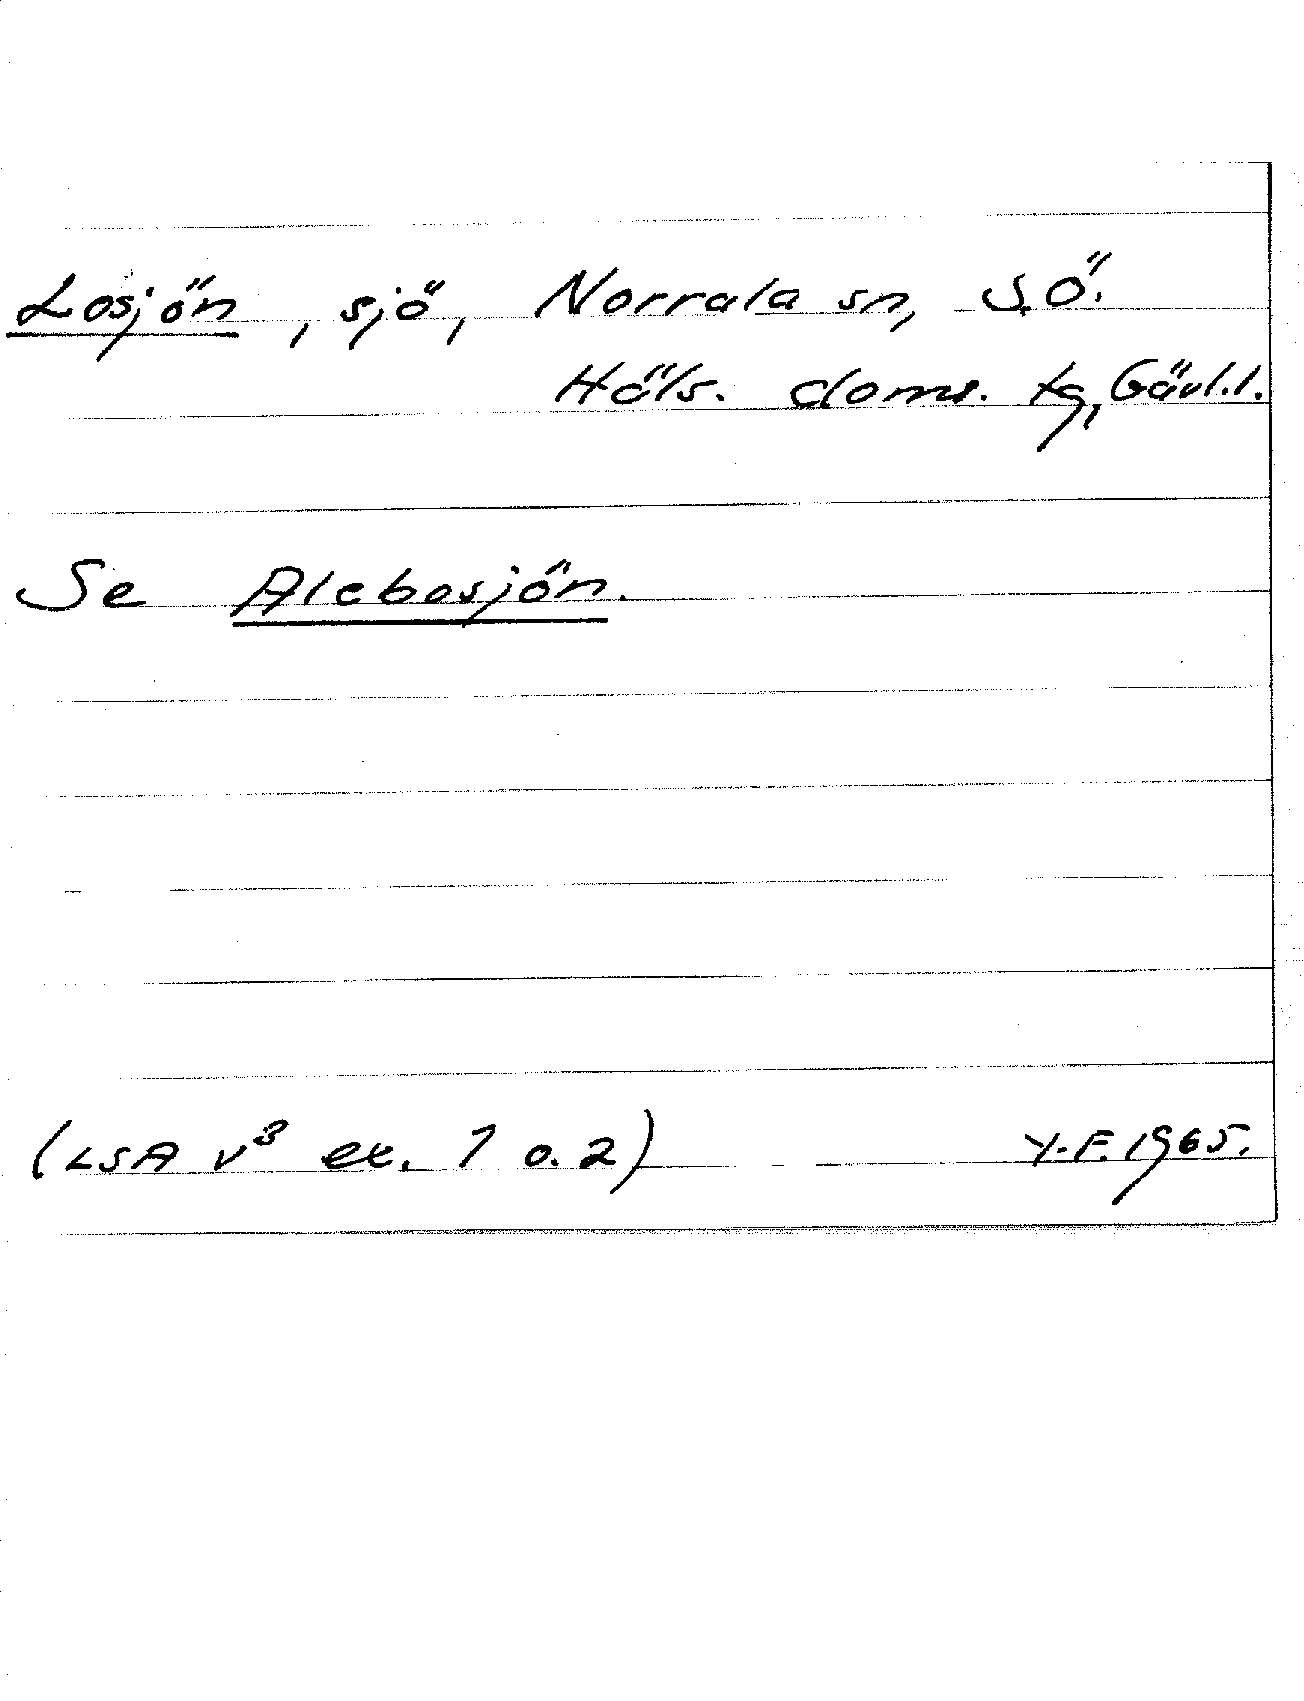 Losjön, sjö, Norrala sn, S.Ö.
Häls. doms. tg, Gävl.l.
Se Alebosjön.
(LSA v³ ex. 1 o. 2) Y.F. 1965.